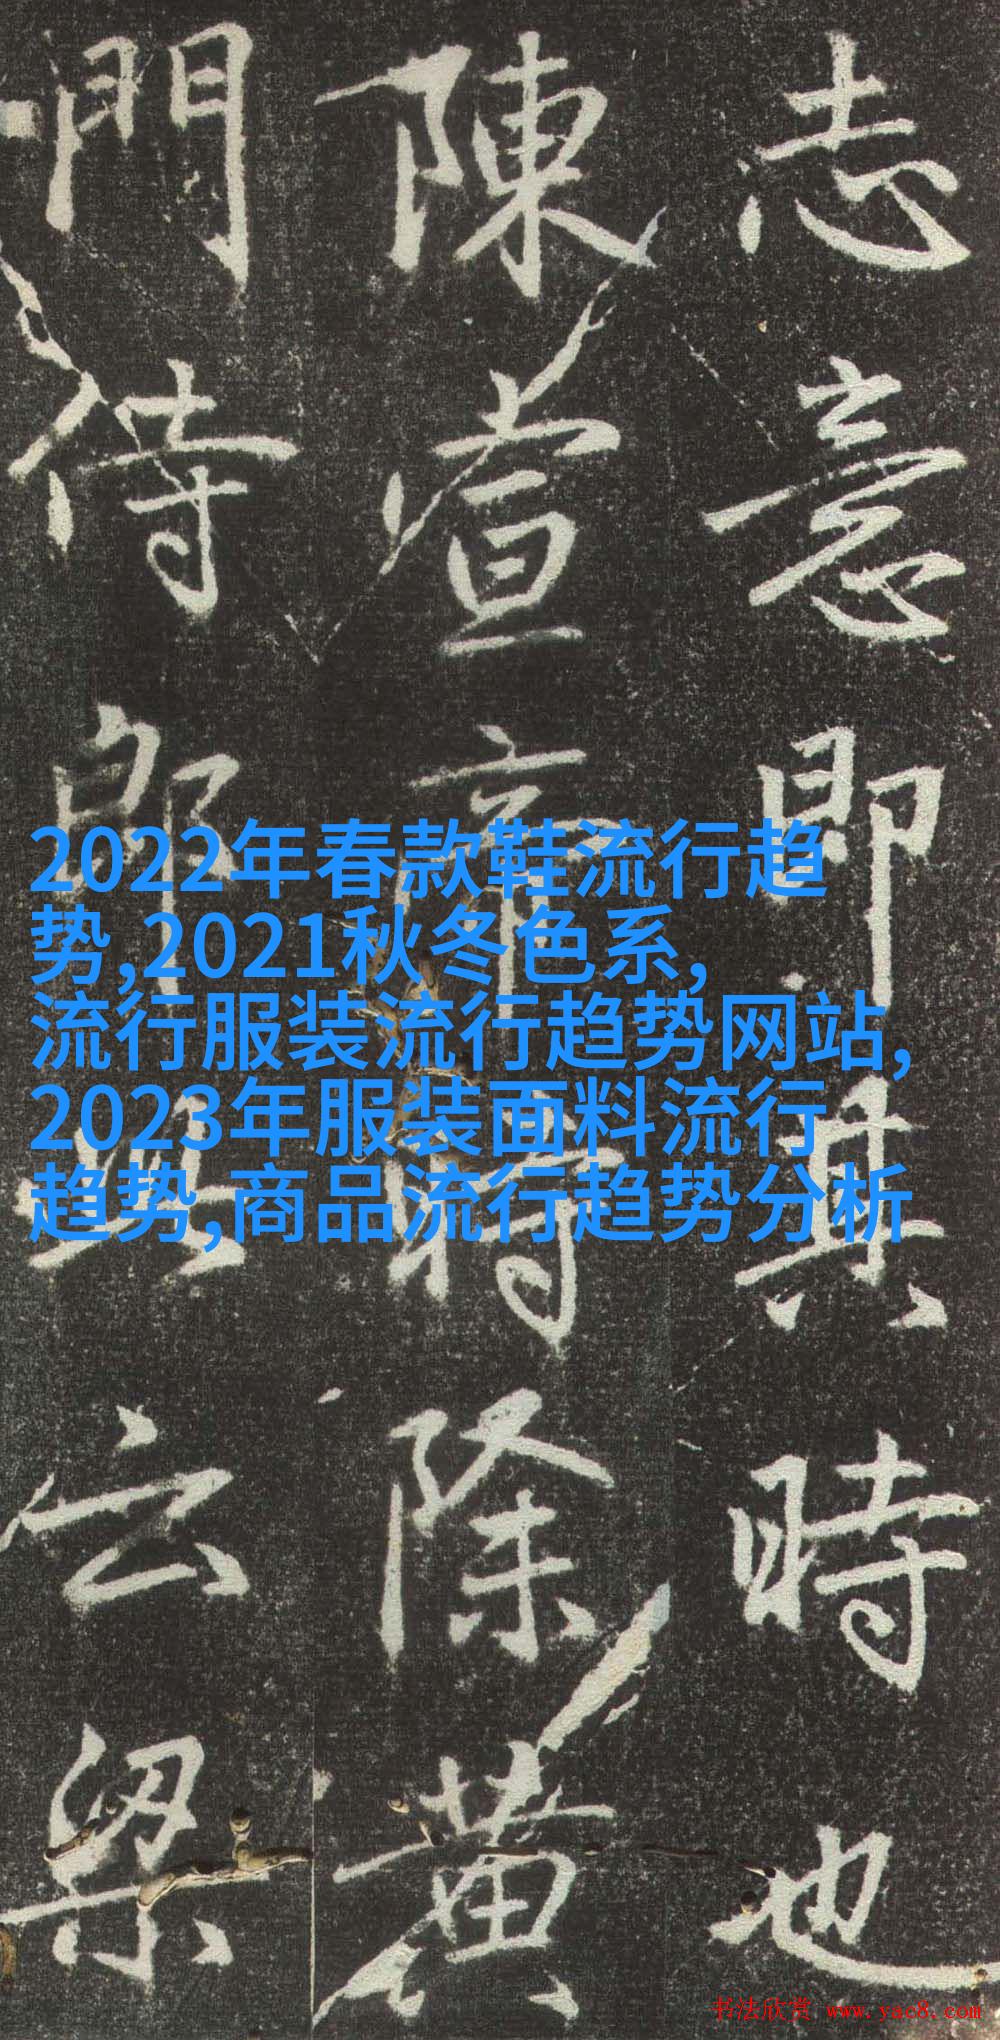 志意即其時也
陳宣帝時除黃
門侍郎云梁
2022年春款鞋流行趋
势,2021秋冬色系,
流行服装流行趋势网站,
2023年服装面料流行
趋势,商品流行趋势分析
书法欣赏 www.yac8.com